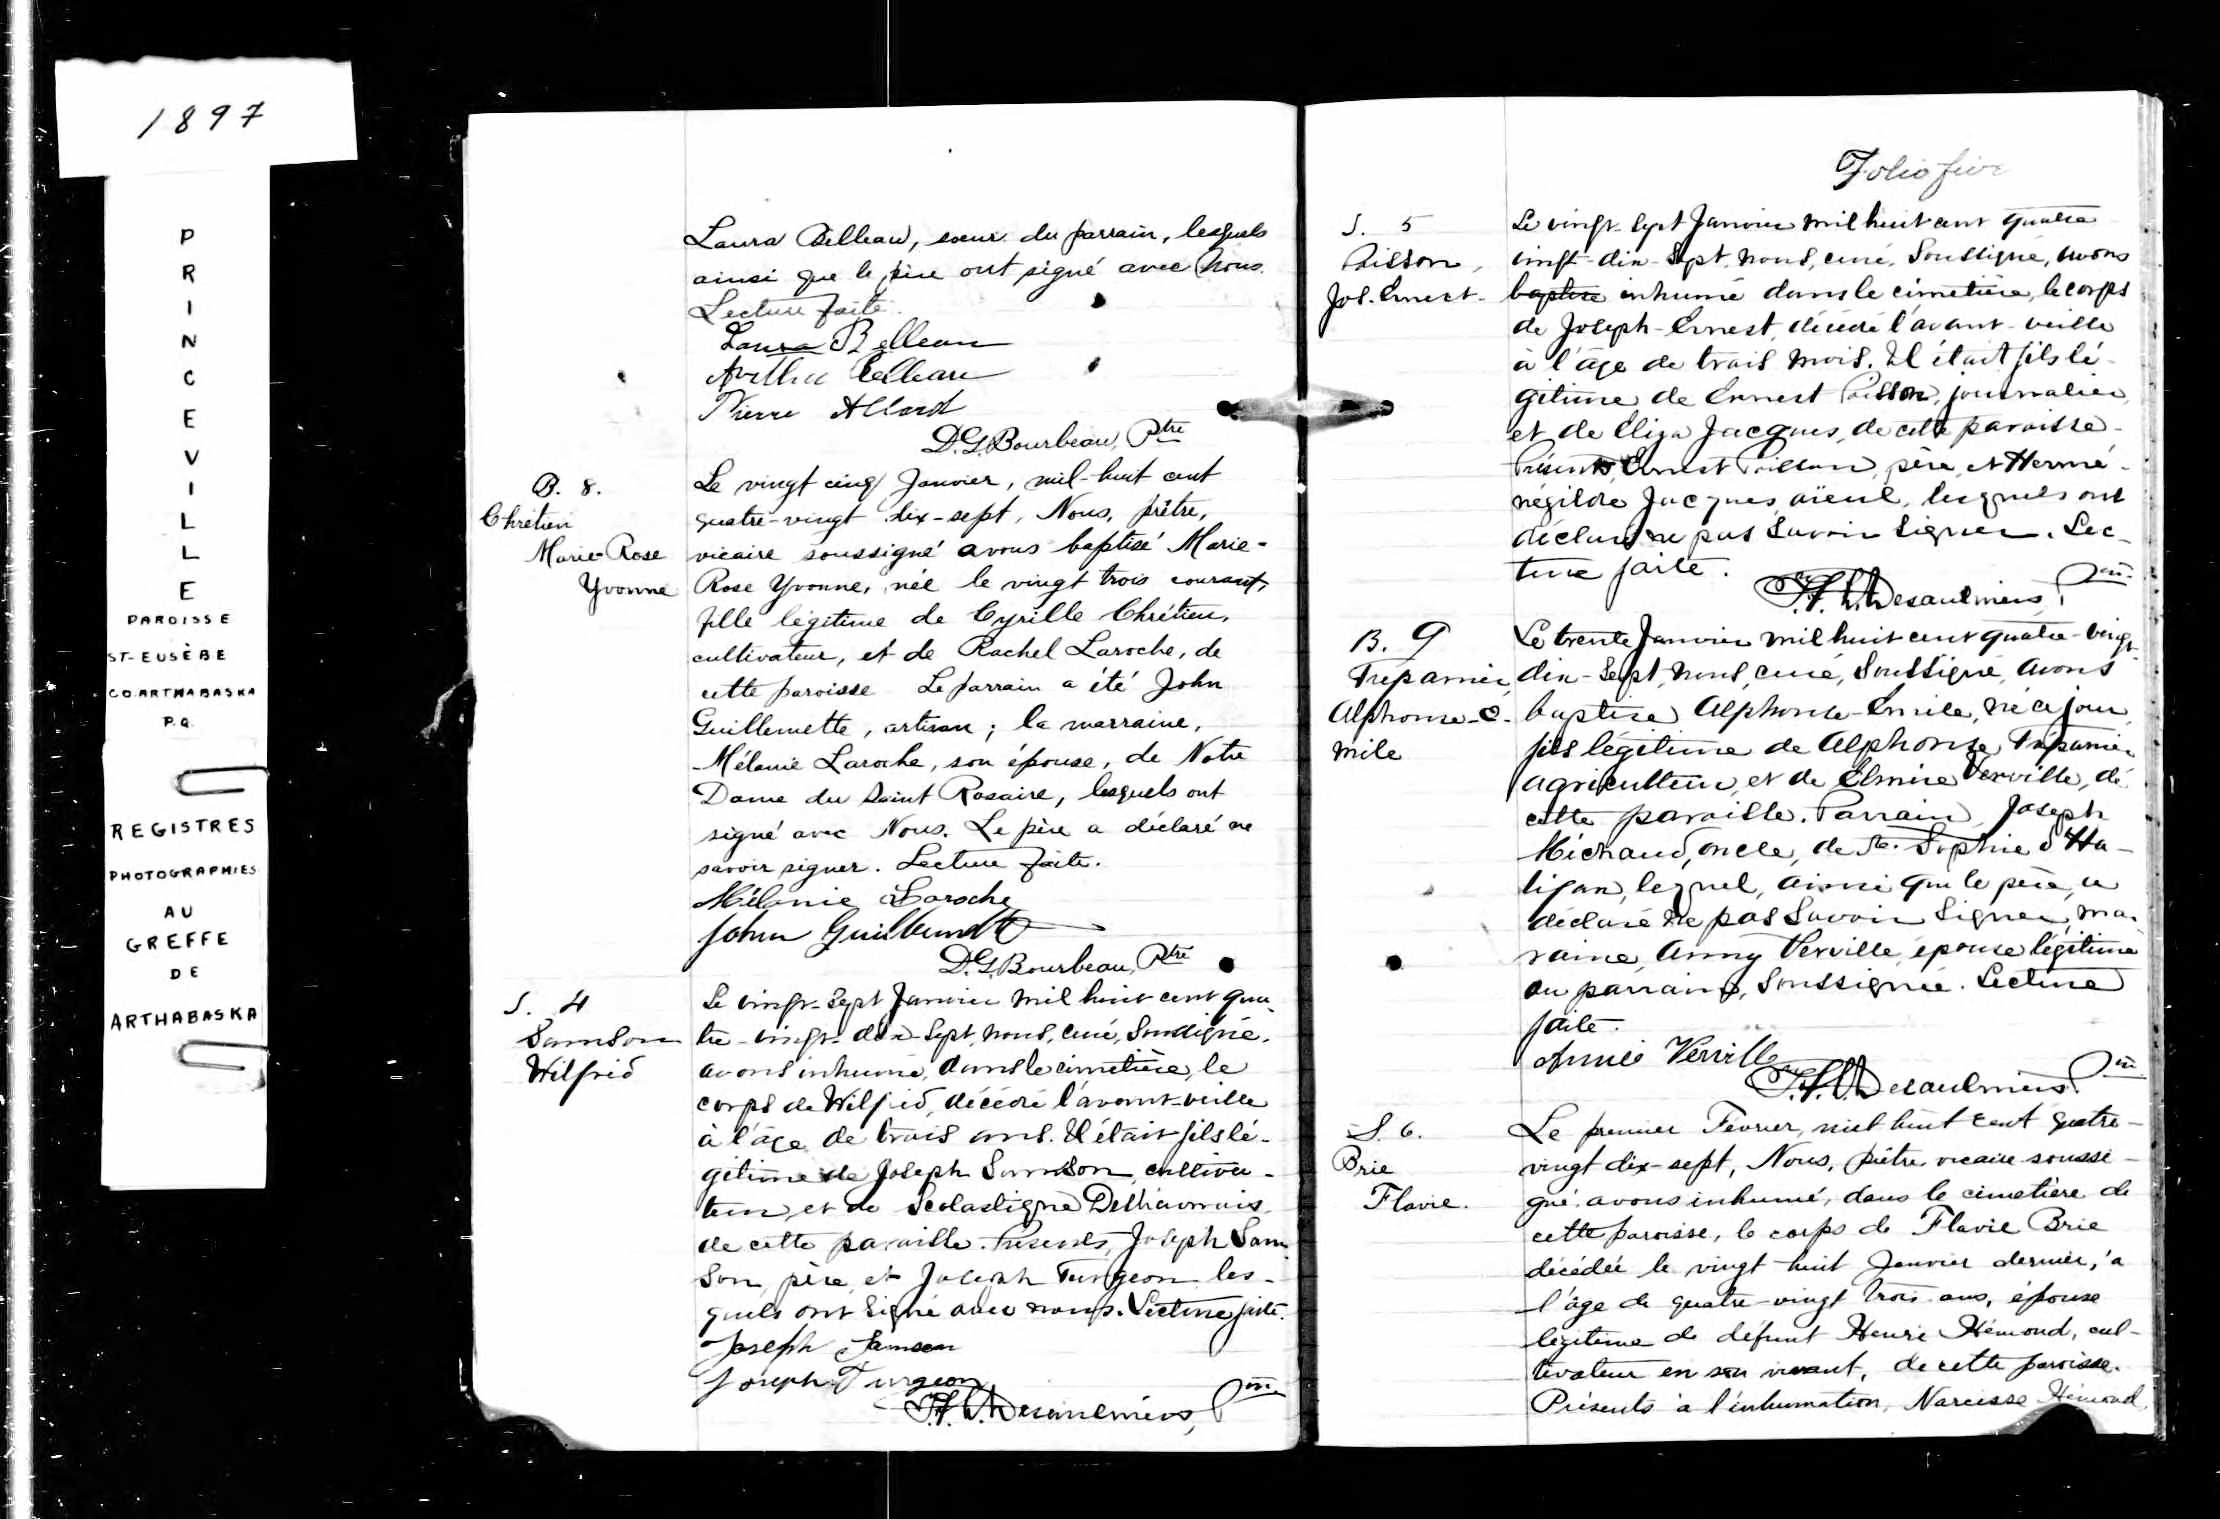 1897
PRINCEVILLE
PAROISSE
ST-EUSÈBE
CO. ARTHABASKA
P.Q.
REGISTRES
PHOTOGRAPHIES
AU
GREFFE
DE
ARTHABASKA
Laura Belleau, soeur du parrain, lesquels
ainsi que le père ont signé avec Nous.
Lecture faite.
Laura Belleau
Arthur Belleau
Pierre Allard
D.G. Bourbeau, Ptre
B. 8.
Chrétien
Marie-Rose
Yvonne
Le vingt cinq Janvier, mil-huit cent
quatre-vingt dix-sept, Nous, prêtre,
vicaire soussigné avons baptisé Marie-
Rose Yvonne, née le vingt trois courant,
fille légitime de Cyrille Chrétien,
cultivateur, et de Rachel Laroche, de
cette paroisse Le parrain a été John
Guillemette, artisan; la marraine,
Mélanie Laroche, son épouse, de Notre
Dame du Saint Rosaire, lesquels ont
signé avec Nous. Le père a déclaré ne
savoir signer. Lecture faite.
Mélanie Laroche
John Guillemette
D.G. Bourbeau, Ptre
S. 4
Samson
Wilfrid
Le vingt-sept Janvier mil huit cent qua-
tre-vingt-dix-sept, nous, curé, soussigné,
avons inhumé, dans le cimetière, le
corps de Wilfrid, décédé l'avant-veille
à l'âge de trois ans. Il était fils lé-
gitime de Joseph Samson, cultiva-
teur, et de Scolastique
de cette paroisse. Présents, Joseph Sam-
son, père, et Joseph Turgeon les-
quels ont signé avec nous. Lecture faite.
Joseph Samson
Joseph Turgeon
Desaulniers, Ptre
Folio five
S. 5
Poisson,
Jos. Ernest.
Le vingt-sept Janvier mil huit cent quatre
vingt-dix-sept, nous, curé, soussigné, avons
baptise inhumé dans le cimetière, le corps
de Joseph-Ernest, décédé l'avant-veille
à l'âge de trois mois. Il était fils lé-
gitime de Ernest Poisson, journalier,
et de Eliza Jacques, de cette paroisse.
Présents, Ernest Poisson, père, et Hermé-
négilde Jacques, aïeul, lesquels ont
déclaré ne pas savoir signer. Lec-
ture faite.
Desaulniers, Ptre
B. 9
Trépanier,
Alphonse-E-
mile
Le trente Janvier mil huit cent quatre-vingt-
dix-sept, nous, curé, soussigné, avons
baptisé Alphonse-Emile, né ce jour,
fils légitime de Alphonse Trépanier
agriculteur, et de Elmire Verville, de
cette paroisse. Parrain, Joseph
Michaud, oncle, de Ste. Sophie d'Ha-
lifax, lequel, ainsi que le père, a
déclaré ne pas savoir signer, mar-
raine, Anny Verville, épouse légitime
du parrain, soussignée. Lecture
faite.
Annie Verville
Desaulniers, Ptre
S. 6.
Brie
Flavie.
Le premier Fevrier, mil huit cent quatre-
vingt dix-sept, Nous, prêtre vicaire soussi-
gné avons inhumé, dans le cimetière de
cette paroisse, le corps de Flavie Brie
décédée le vingt-huit Janvier dernier, à
l'âge de quatre-vingt trois ans, épouse
légitime de défunt Henri Hémond, cul-
tivateur en son vivant, de cette paroisse.
Présents à l'inhumation, Narcisse Hémond,